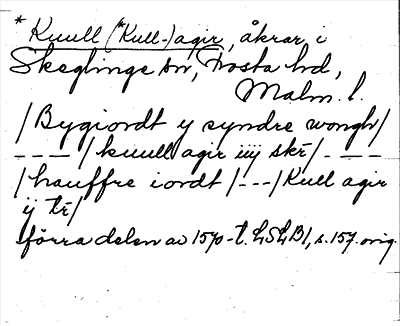 * Kuull (*Kull-) agir, åkrar i
Skeglinge sn, Frosta hd,
Malm. l.
/Bygiordt y syndre wongh/
---- /kuull agir iiij skr/. ----
/hauffre iordt/---/Kull agir
ij tr/
förra delen av 1570-t. LSLB1, s. 157. orig.